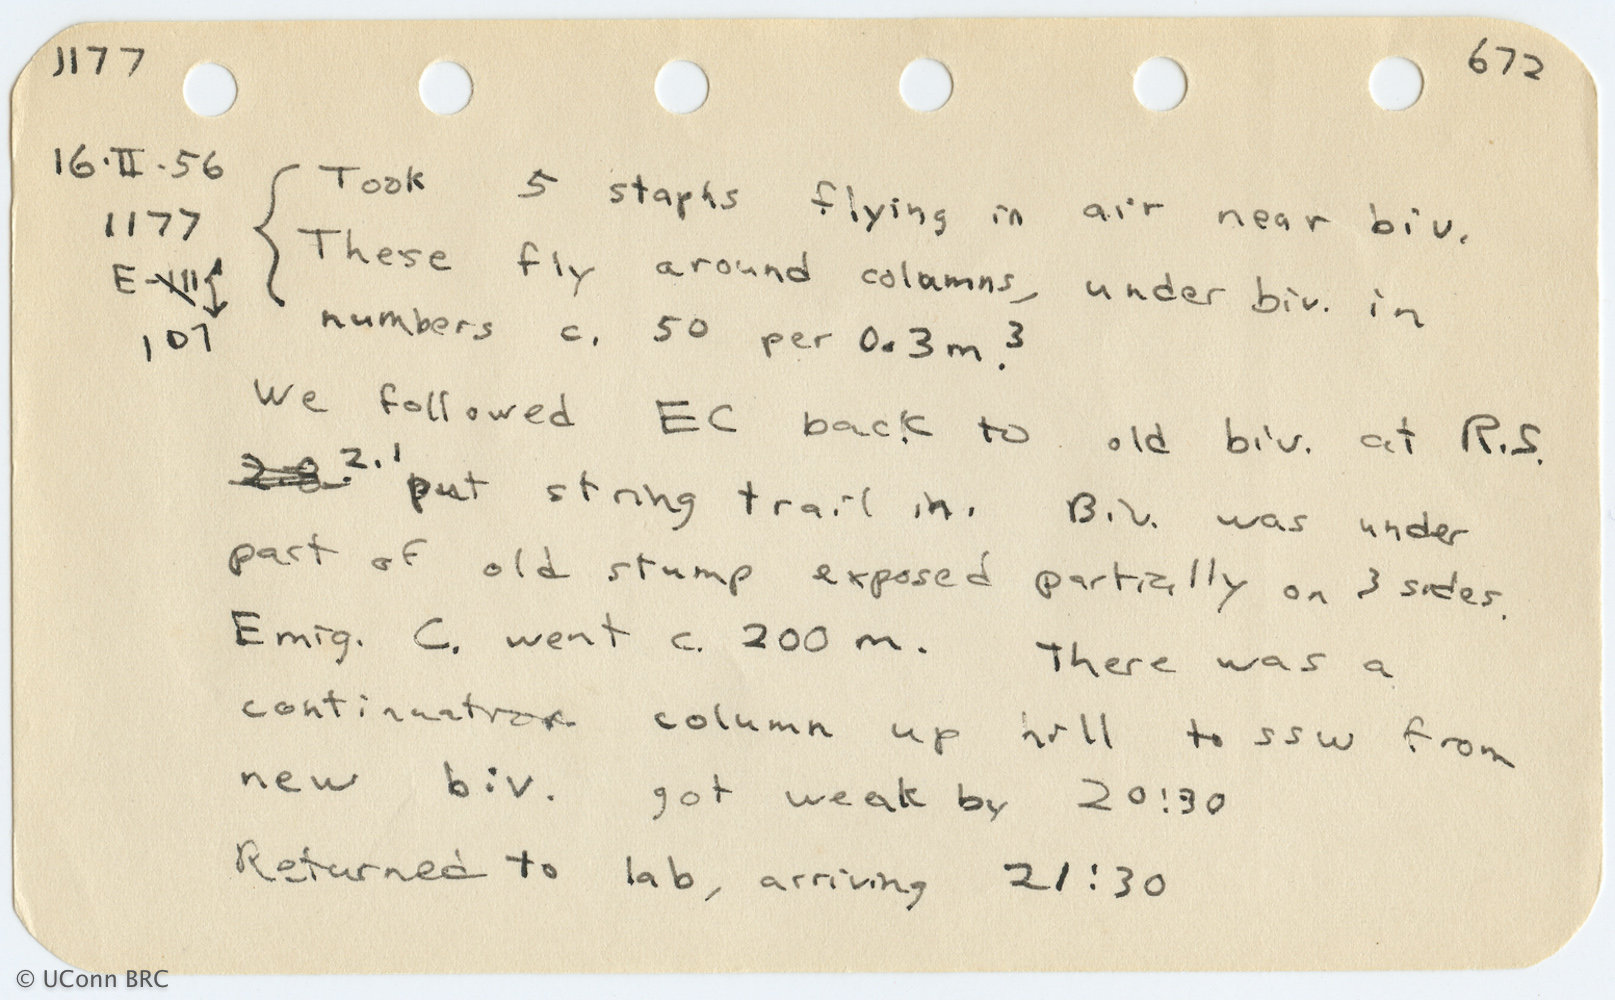 1177 672
16·II·56 Took 5 staphs flying in air near biv.
1177 These fly around columns, under biv. in
E-VII numbers c. 50 per 0.3m.³
107
We followed EC back to old biv. at R.S.
2.8. 2.1 put string trail in. Biv. was under
part of old stump exposed partially on 3 sides.
Emig. C. went c. 200 m. There was a
continuation column up hill to SSW from
new biv. got weak by 20:30
Returned to lab, arriving 21:30
© UConn BRC